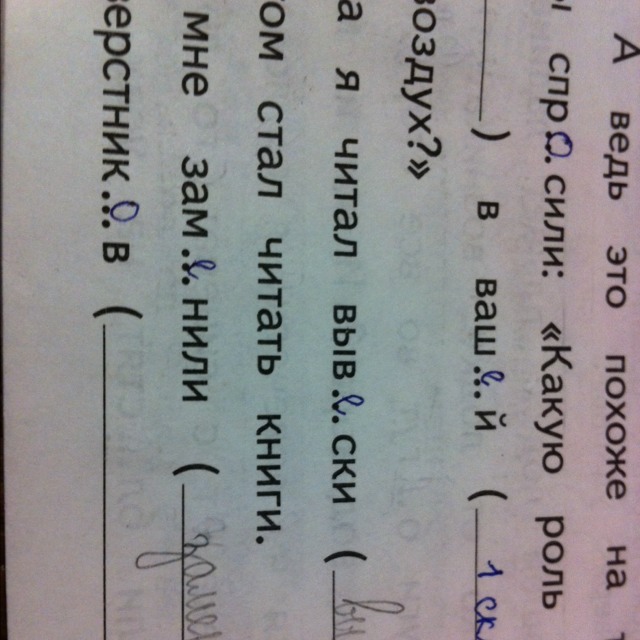 А ведь это похоже на
спро..сили: «Какую роль
) в ваше..й ( 1 ск
воздух?»
а я читал выве..ски (
ом стал читать книги.
мне заме..нили (
ерстнико..в (